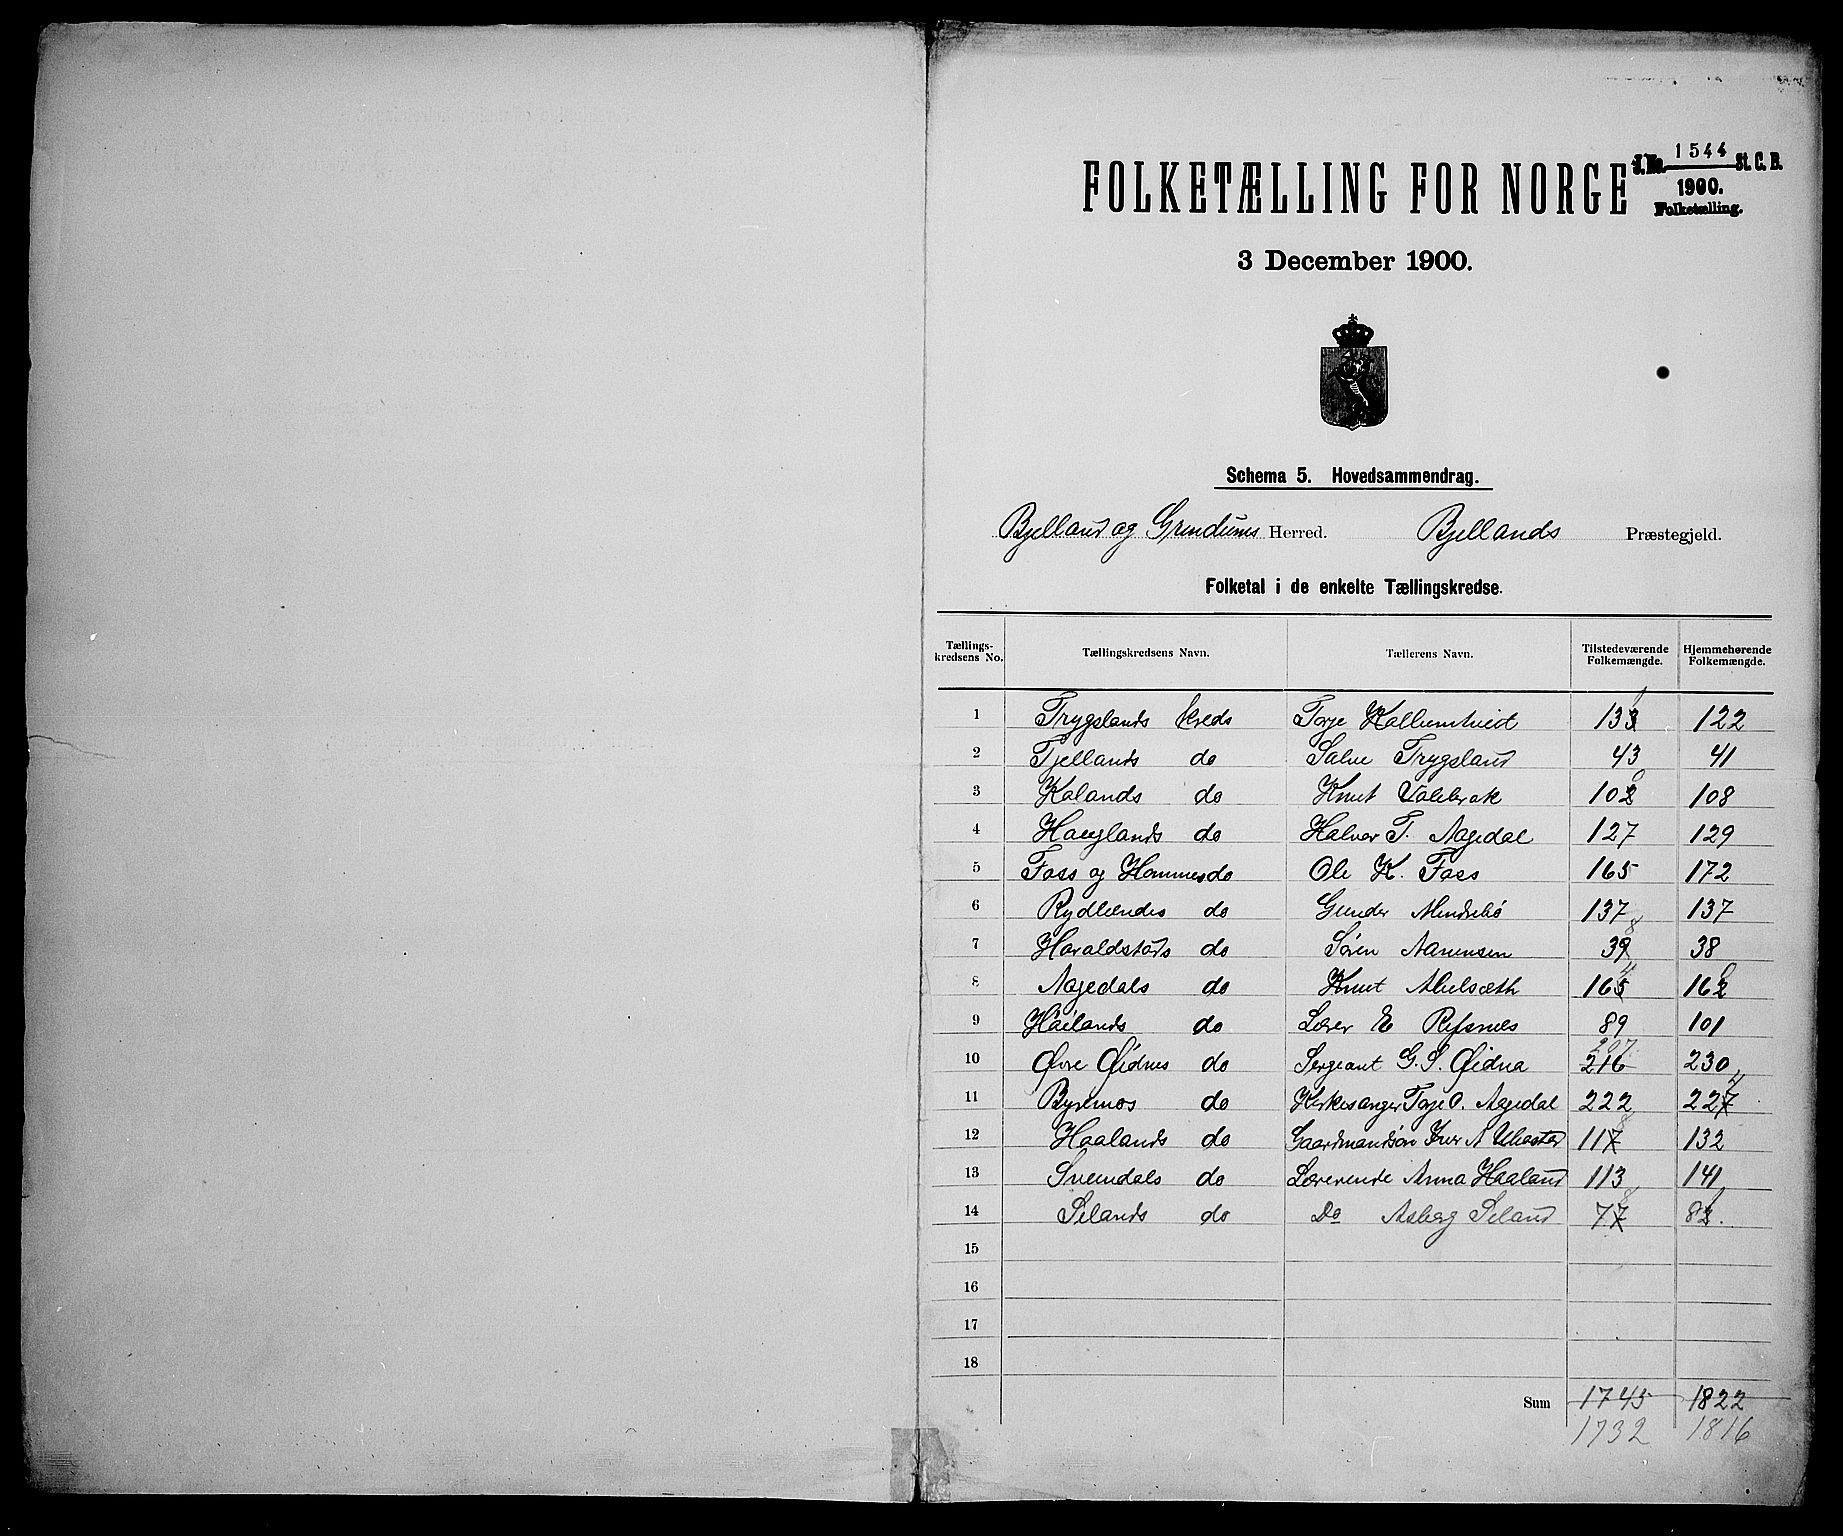 FOLKETÆLLING FOR NORGE
J.No. 1544 St. C. B.
1900.
Folketælling.
3 December 1900.
Schema 5. Hovedsammendrag.
Bjelland og Grindums Herred. Bjellands Præstegjeld.
Folketal i de enkelte Tællingskredse.
Tællingskredsens No. Tællingskredsens Navn. Tællerens Navn. Tilstedeværende Folkemængde. Hjemmehørende Folkemængde.
1 Trygslands kreds Torje 133 1 122
2 Tjellands do Salve Trygsland 43 41
3 Kalands do Knut 102 0 108
4 Hauglands do Halvor T. Aagedal 127 129
5 Foss og Hommes do Ole K. Foss 165 172
6 Rydlændes do Gunder 137 137
7 Haraldstads do Søren Aanensen 39 8 38
8 Aagedals do Knut Abelsæth 165 4 162 0
9 Håilands do Lærer E Refsnes 89 101
10 Øvre Øidnes do Sergeant G. S. Øidna 216 207 230
11 Byremos do Kirkesanger Torje O. Aagedal 222 227 4
12 Haalands do Gaardmandsøn Iver A 117 8 132
13 Sveindals do Lærerinde Anna Haaland 113 141
14 Selands do Do Asberg Seland 77 8 82 1
15
16
17
18
Sum 1745 1822
1732 1816